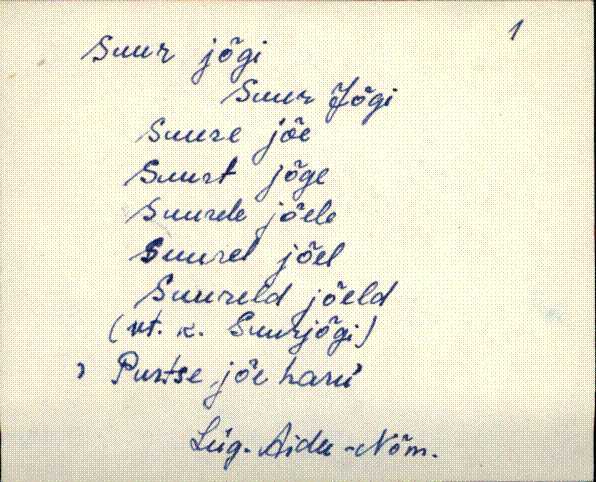 1
Suur jõgi
Suur Jõgi
Suure jõe
Suurt jõge
Suurele jõele
Suurel jõel
Suureld jõeld
(vt. k. Suurjõgi)
Purtse jõe haru
Lüg. Aidu-Nõm.